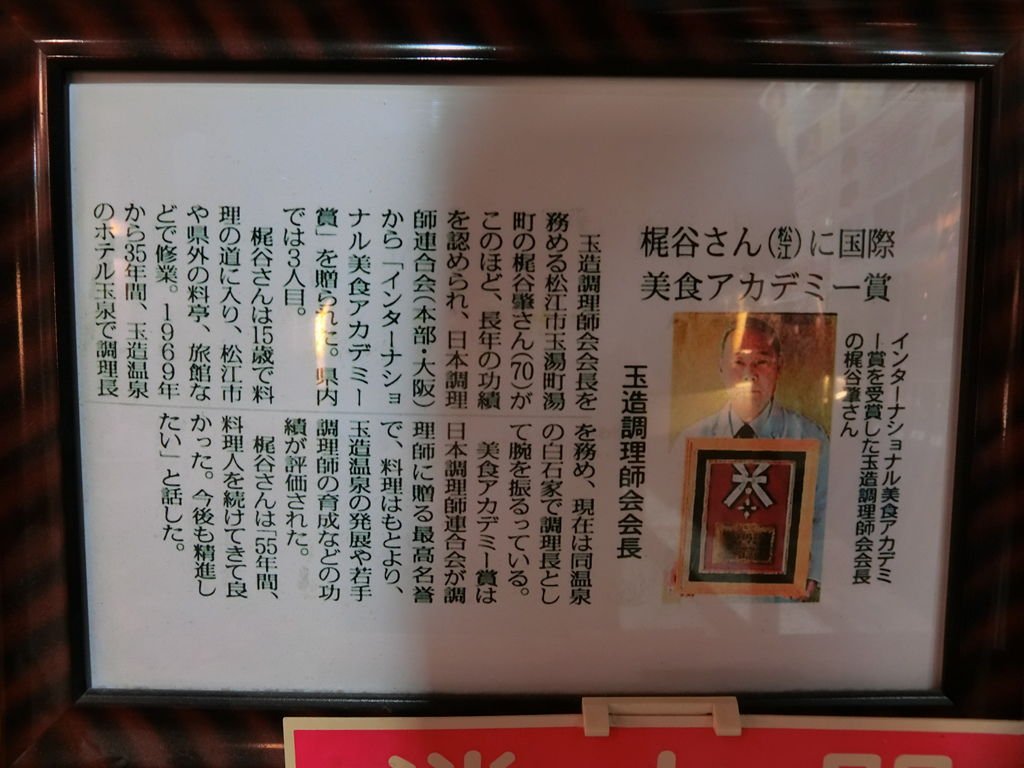 梶谷さん(松江)に国際
美食アカデミー賞
インターナショナル美食アカデミ
ー賞を受賞した玉造調理師会会長
の梶谷肇さん
玉造調理師会会長
玉造調理師会会長を
務める松江市玉湯町湯
町の梶谷肇さん(70)が
このほど、長年の功績
を認められ、日本調理
師連合会(本部・大阪)
から「インターナショ
ナル美食アカデミー
賞」を贈られた。県内
では3人目。
梶谷さんは15歳で料
理の道に入り、松江市
や県外の料亭、旅館な
どで修業。1969年
から35年間、玉造温泉
のホテル玉泉で調理長
を務め、現在は同温泉
の白石家で調理長とし
て腕を振るっている。
美食アカデミー賞は
日本調理師連合会が調
理師に贈る最高名誉
で、料理はもとより、
玉造温泉の発展や若手
調理師の育成などの功
績が評価された。
梶谷さんは「55年間、
料理人を続けてきて良
かった。今後も精進し
たい」と話した。